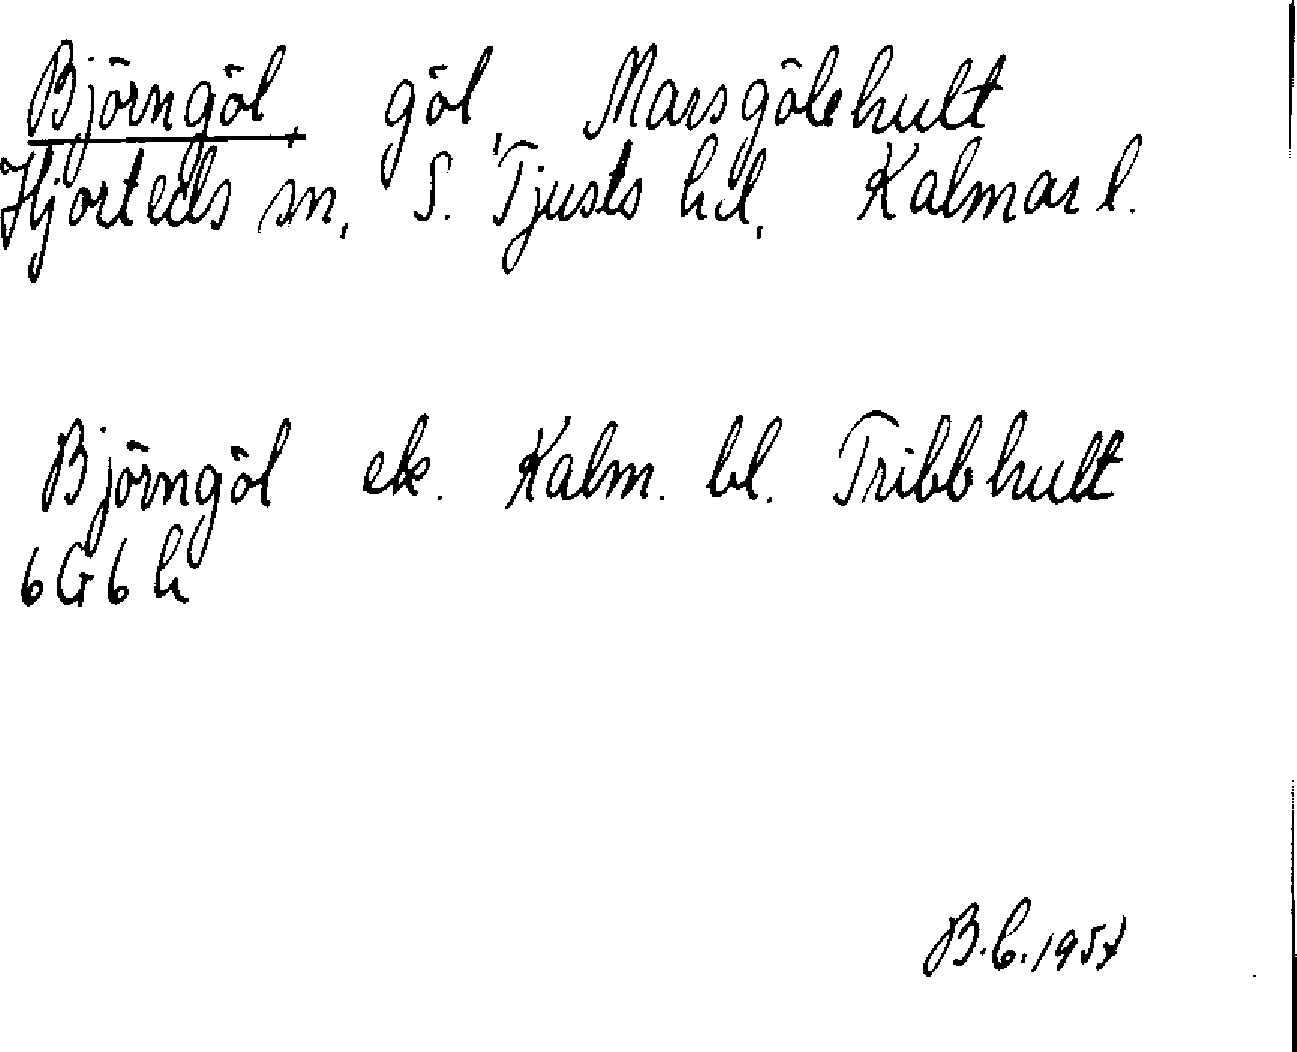 Björngöl, göl, Marsgölehult
Hjorteds sn, S. Tjusts hd, Kalmar l.
Björngöl ek. Kalm. bl. Tribbhult
6G6h